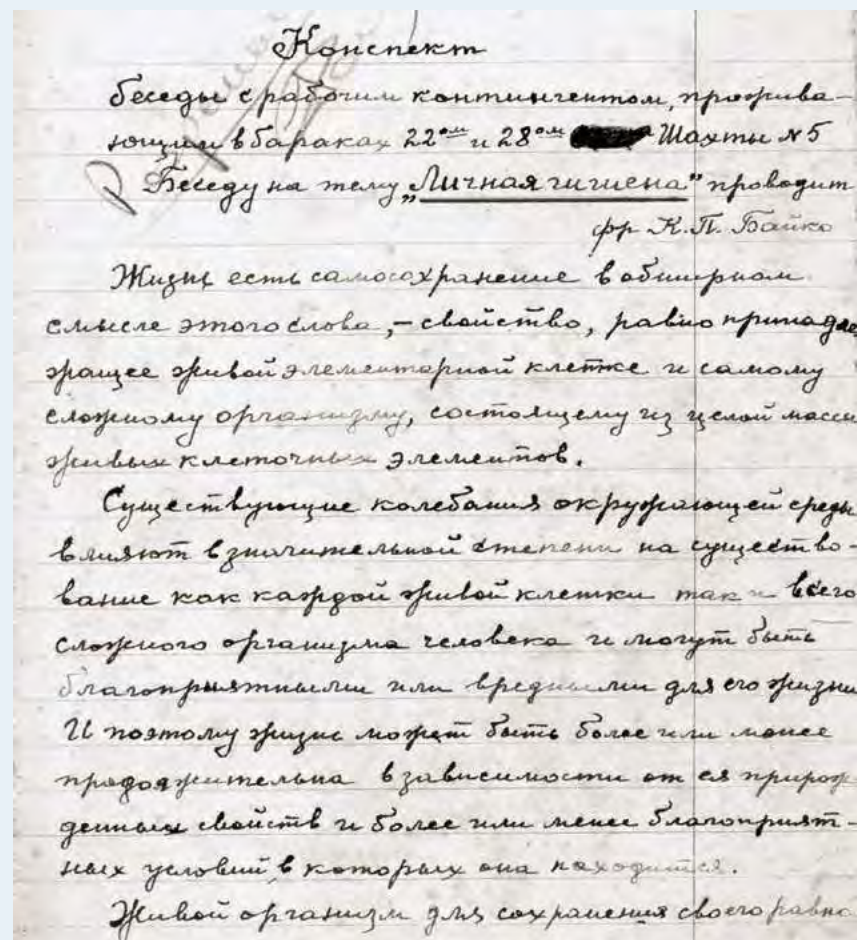 Конспект
беседы с рабочим контингентом, прожива-
ющим в бараках 22ом и 28ом Шахты №5
Беседу на тему „Личная гигиена" проводит
фр К.П. Байко
Жизнь есть самосохранение в обширном
смысле этого слова, – свойство, равно принадле
жащее живой элементарной клетке и самому
сложному организму, состоящему из целой массы
живых клеточных элементов.
Существующие колебания окружающей среды
влияют в значительной степени на существо-
вание как каждой живой клетки так и всего
сложного организма человека и могут быть
благоприятными или вредными для его жизни
И поэтому жизнь может быть более или менее
продолжительна в зависимости от ея прирож-
денных свойств и более или менее благоприят-
ных условий, в которых она находится.
Живой организм для сохранения своего равно